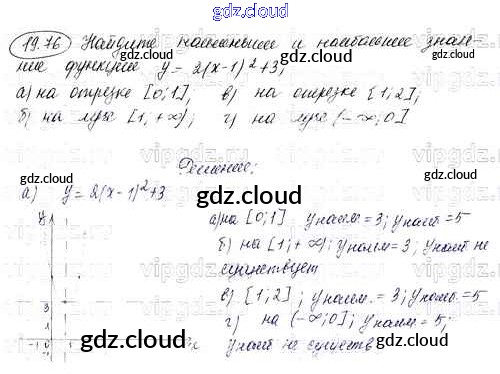 gdz.cloud
19.76 Найдите наименьшее и наибольшее значение функции y = 2(x-1)²+3;
а) на отрезке [0;1], в) на отрезке [1;2];
б) на луче [1,+∞); г) на луче (-∞;0]
Решение:
а) y = 2(x-1)²+3
gdz.cloud
y
а) на [0;1] yнаим = 3; yнаиб = 5
б) на [1;+∞); yнаим = 3, yнаиб не
существует
в) [1;2]; yнаим. = 3; yнаиб. = 5
г) на (-∞;0]; yнаим = 5;
yнаиб не существ
3
-1 0
gdz.cloud
gdz.cloud